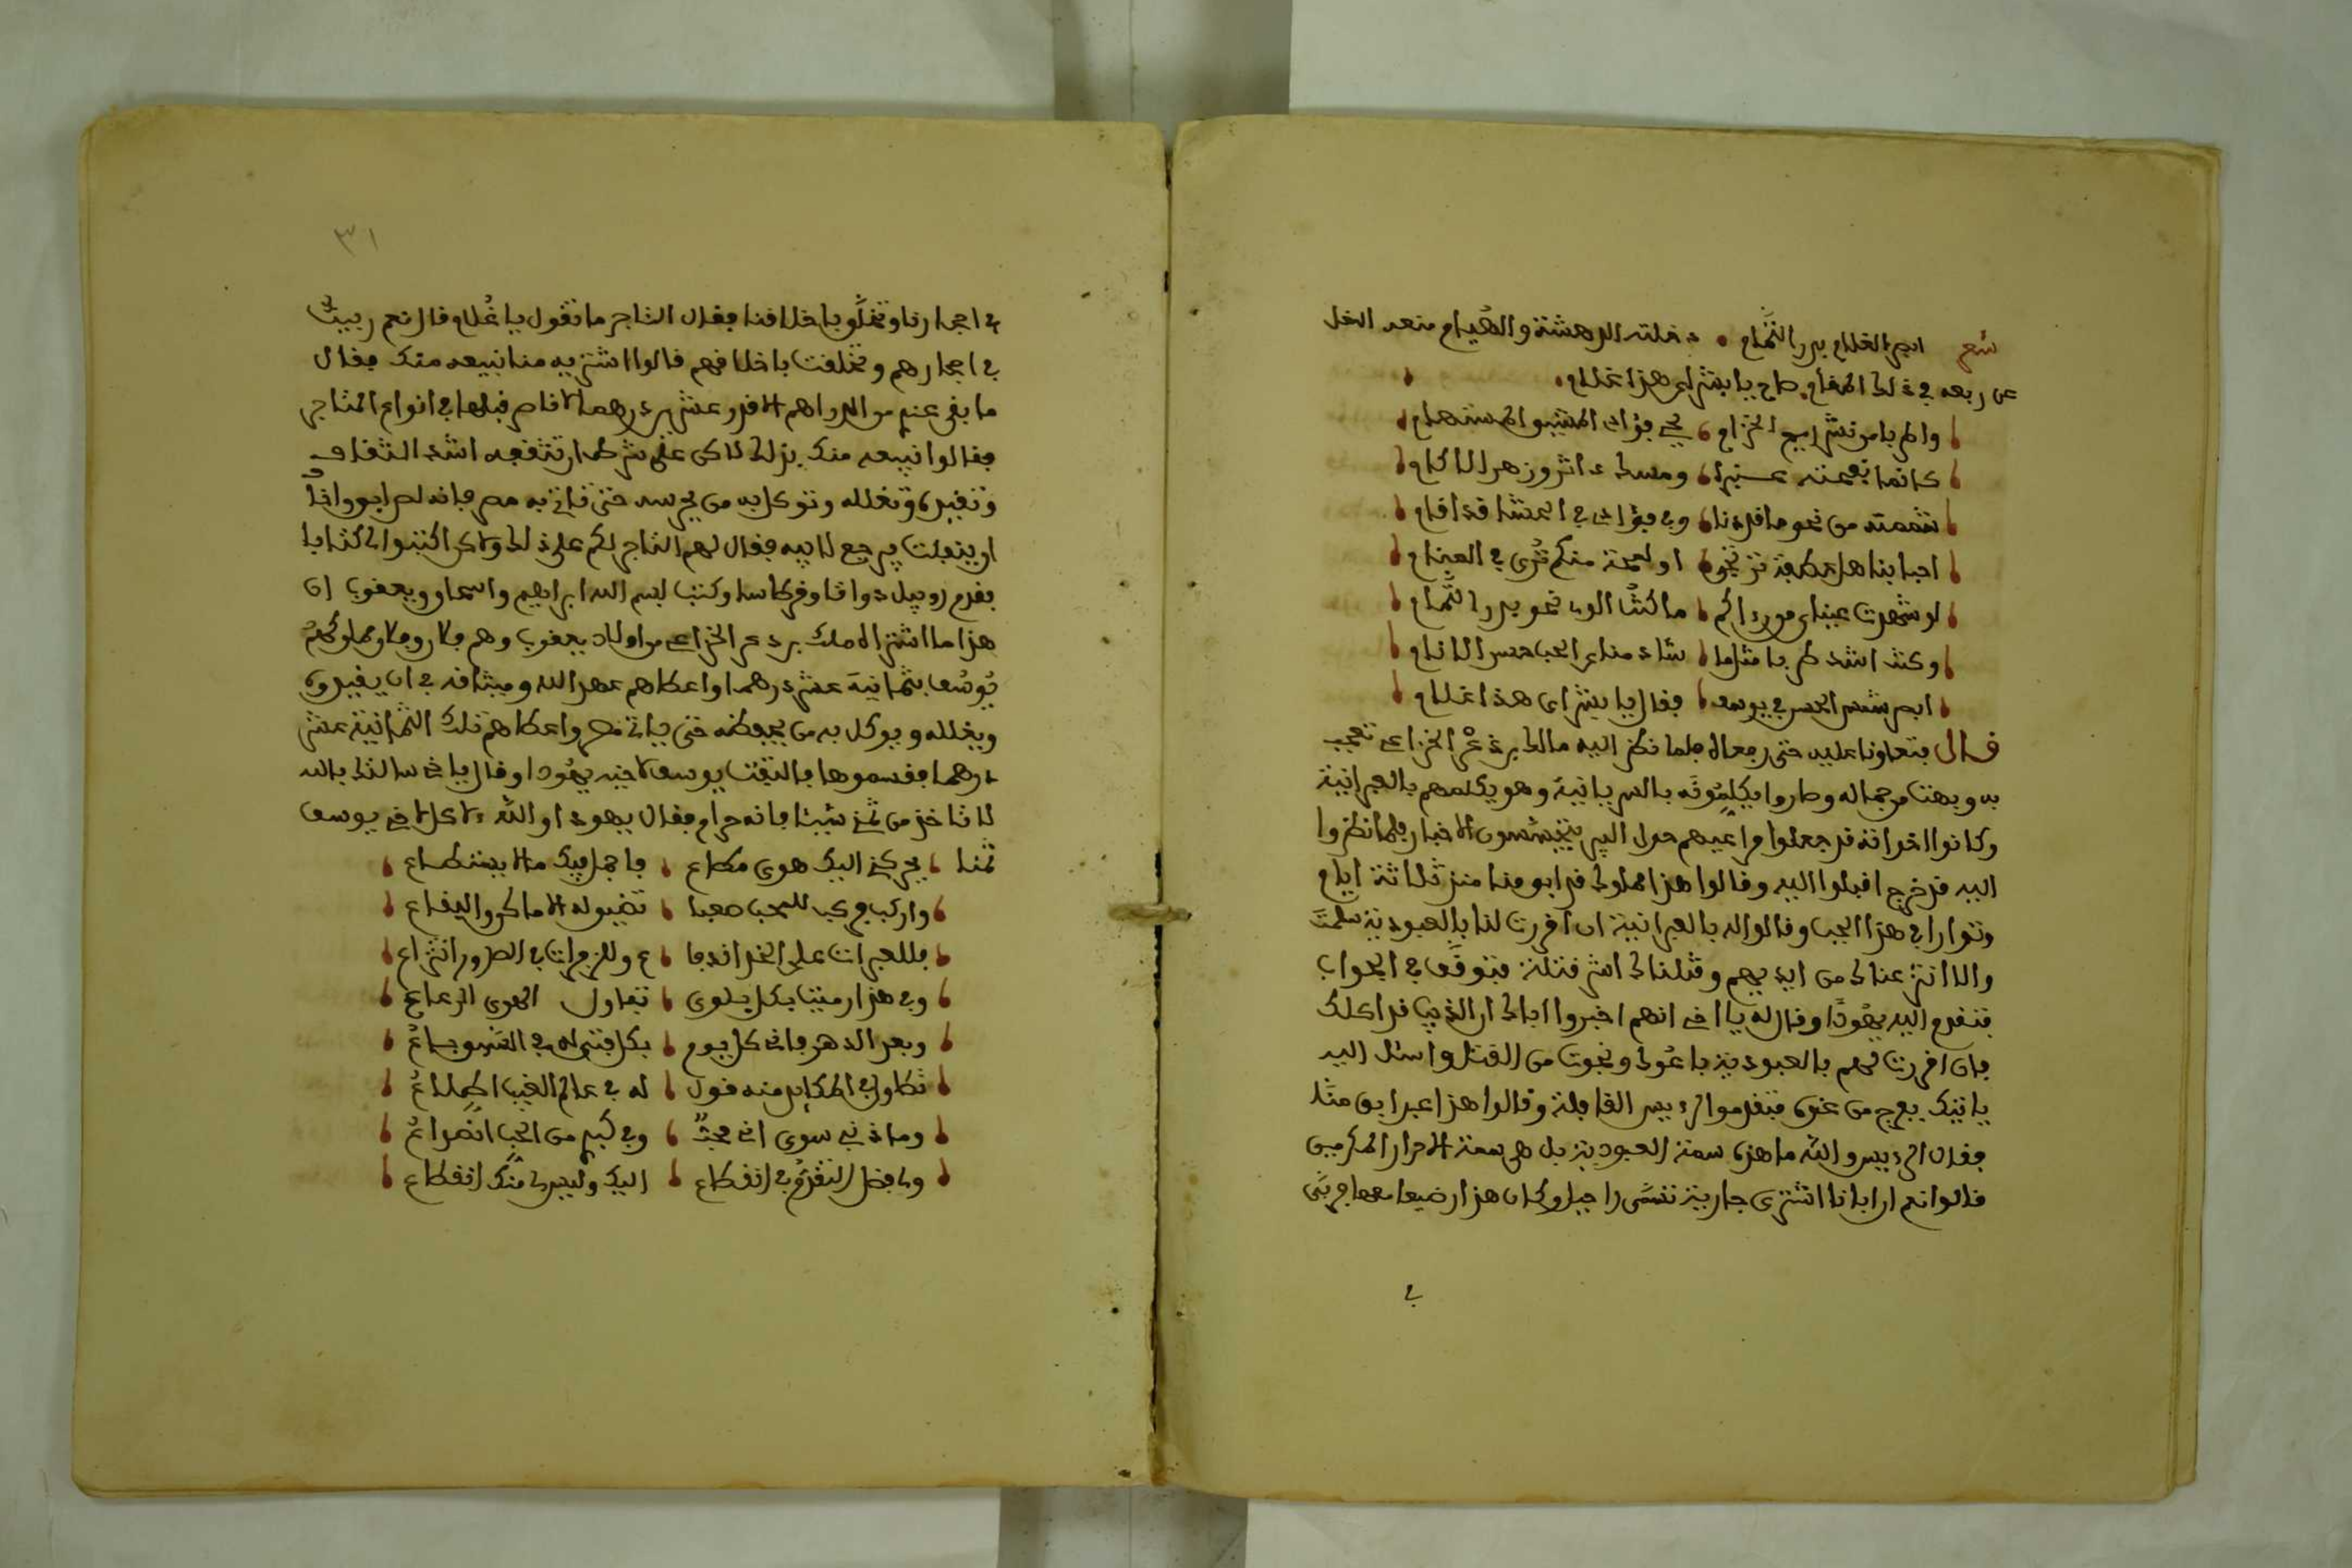 شعر ابصر الغلام بدر التمام دخلته الدهشة والهيام منعه الخل
عن ربعه في ذلك المقام صاح يا بشراي هذا غلام
واطربا من نشر ريح الخزام يحي فؤاد المستهام
كانما نعمته عنبرا ومسك دانر وزهر الاكام
شممته من نحو ما قد دنا وفي فؤادي في الحشا قد اقام
احبابنا هل عطفة ترتجى او لمحة منكم ترى في المنام
لو شهدت عيناي مورداكم ما كنت الوي نحو بدر التمام
وكنت انشد طربا مثلما شاد منادي الحب حسن الانام
ابصر شمس الحسن في يوسف فقال يا بشراي هذا غلام
قال فتعاونا عليه حتى رفعاه فلما نظر اليه مالك بن ذعر الخزاعي تعجب
به وبهت من جماله وصاروا يكلمونه بالسريانية وهو يكلمهم بالعبرانية
وكانوا اخوانه قد جعلوا مراعيهم حول البير يتجسسون الاخبار فلما نظروا
اليه قد خرج اقبلوا اليه وقالوا هذا مملوك قد ابق منا منذ ثلاثة ايام
وتوارا في هذا الجب وقالوا له بالعبرانية ان اقررت لنا بالعبودية سلمت
والا انتزعناك من ايديهم وقتلناك اشر قتلة فتوقف في الجواب
فتقدم اليه يهودا وقال له يا اخي انهم اخبروا اباك ان الذيب قد اكلك
فان اقررت لهم بالعبودية باعوك ونجوت من القتل واسئل الله
ياتيك بفرج من عنده فتقدموا لرءيس القافلة وقالوا هذا عبد ابق منا
فقال الرءيس والله ما هذه سمة العبودية بل هي سمة الاحرار المكرمين
قالوا نعم ان ابانا اشترى جارية تسمى راحيل وكان هذا رضيعا معها فربى
في
٣١
في احجارنا وتخلق باخلاقنا فقال التاجر ما تقول يا غلام قال نعم ربيت
في احجارهم وتخلقت باخلاقهم قالوا اشتريه منا نبيعه منك فقال
ما بقى عندي من الدراهم الا قدر عشرين درهما لانا صرفناها في انواع المتاجر
فقالوا نبيعه منك بذلك لاكن على شرط ان تثقفه اشد الثقاف
وتقيده وتغلله وتوكل به من يحرسه حتى تاتي به مصر فانه لص ابق واذا
ان ينفلت يرجع لابيه فقال لهم التاجر لكم علي ذلك ولاكن اكتبوا لي كتابا
فقدم روبيل دواتا وقرطاسا وكتب بسم اله ابراهيم واسحاق ويعقوب ان
هذا ما اشتراه مالك بن ذعر الخزاعي من اولاد يعقوب وهم فلان وفلان مملوكهم
يوسف بثمانية عشر درهما واعطاهم عهد الله وميثاقه في ان يقيده
ويغلله ويوكل به من يحفظه حتى ياتي مصر واعطاهم تلك الثمانية عشر
درهما فقسموها فالتفت يوسف لاخيه يهودا وقال يا اخي سالتك بالله
لا تاخذ من ثمني شيئا فانه حرام فقال يهودا والله لا اكل لاخي يوسف
ثمنا يحركني اليك هوى مطاع فاحمل فيك ما لا يستطاع
واركب في للمحب صعبا تضيق له الاماكن والبقاع
فللعبرات على الخد اندفاع وللزفرات في الصدر انتزاع
وفي هذا رميت بكل بلوى تفاول الهوى الرعاع
وبعد الدهر فاني كل يوم بكل فتى له في السوق يباع
تطاول في المكاره منه قول له في عالم الغيب اطلاع
وما ذنبي سوى اني محب وفي كبدي من الحب انصداع
ولي فضل التفرق في انقطاع اليك وليس لي منك انقطاع